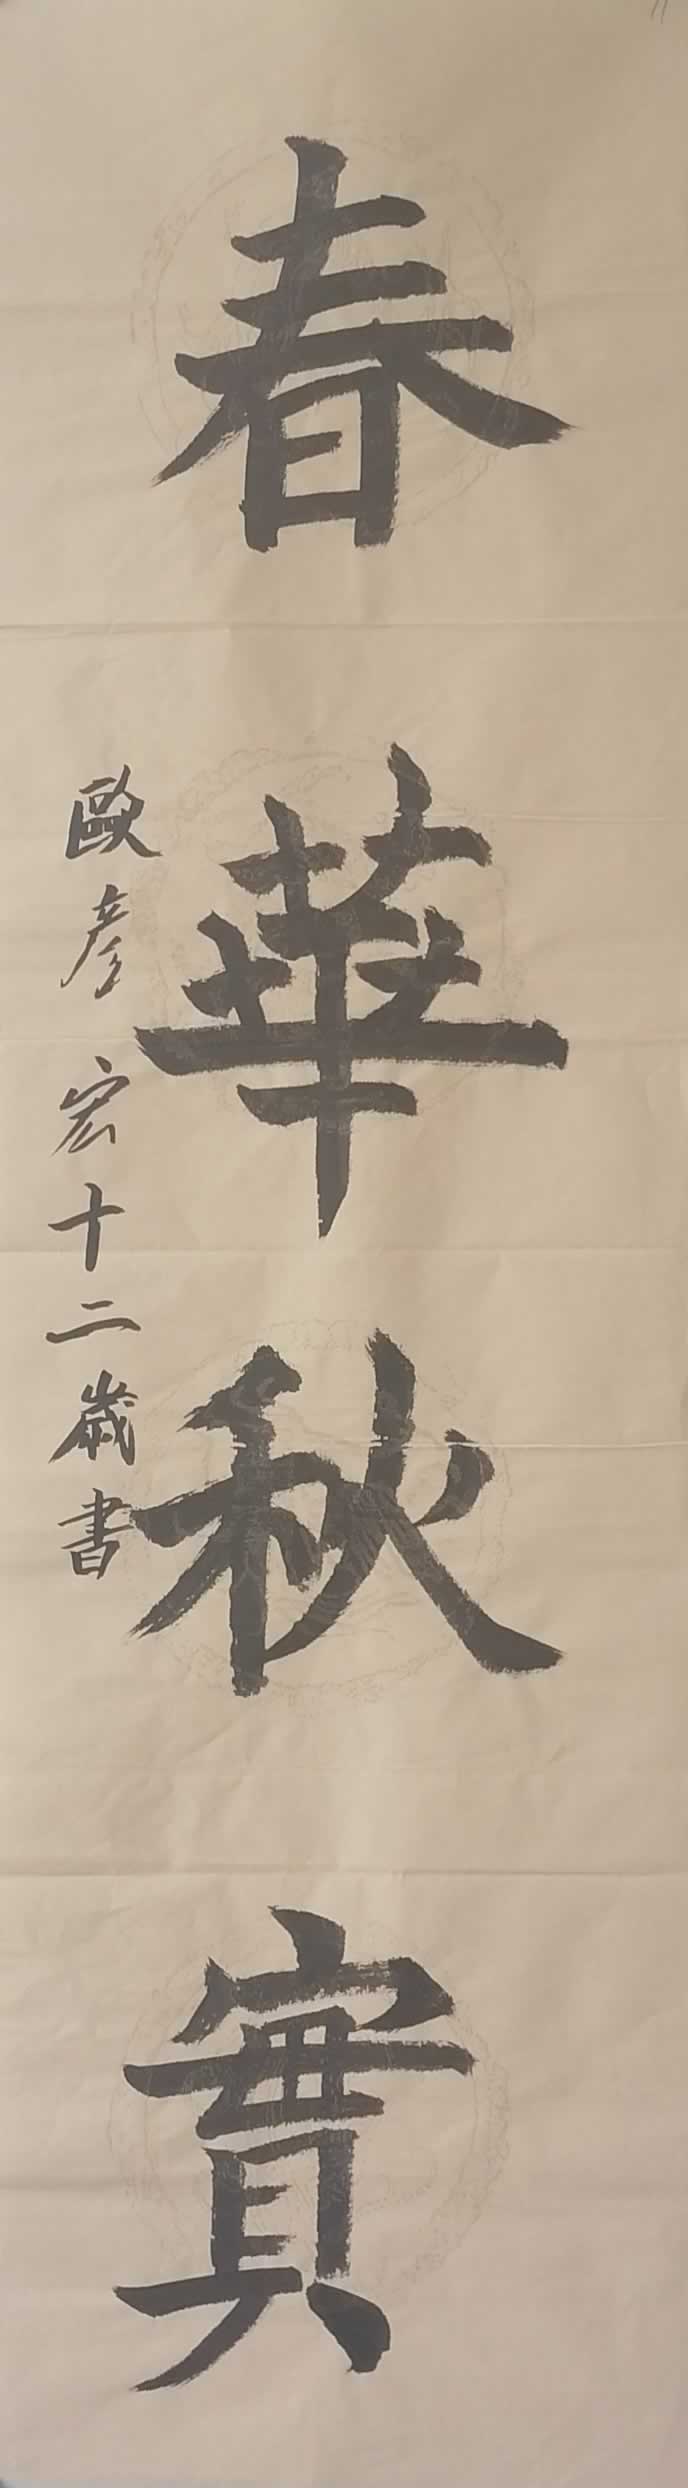 春華秋實
歐彥宏十二歲書